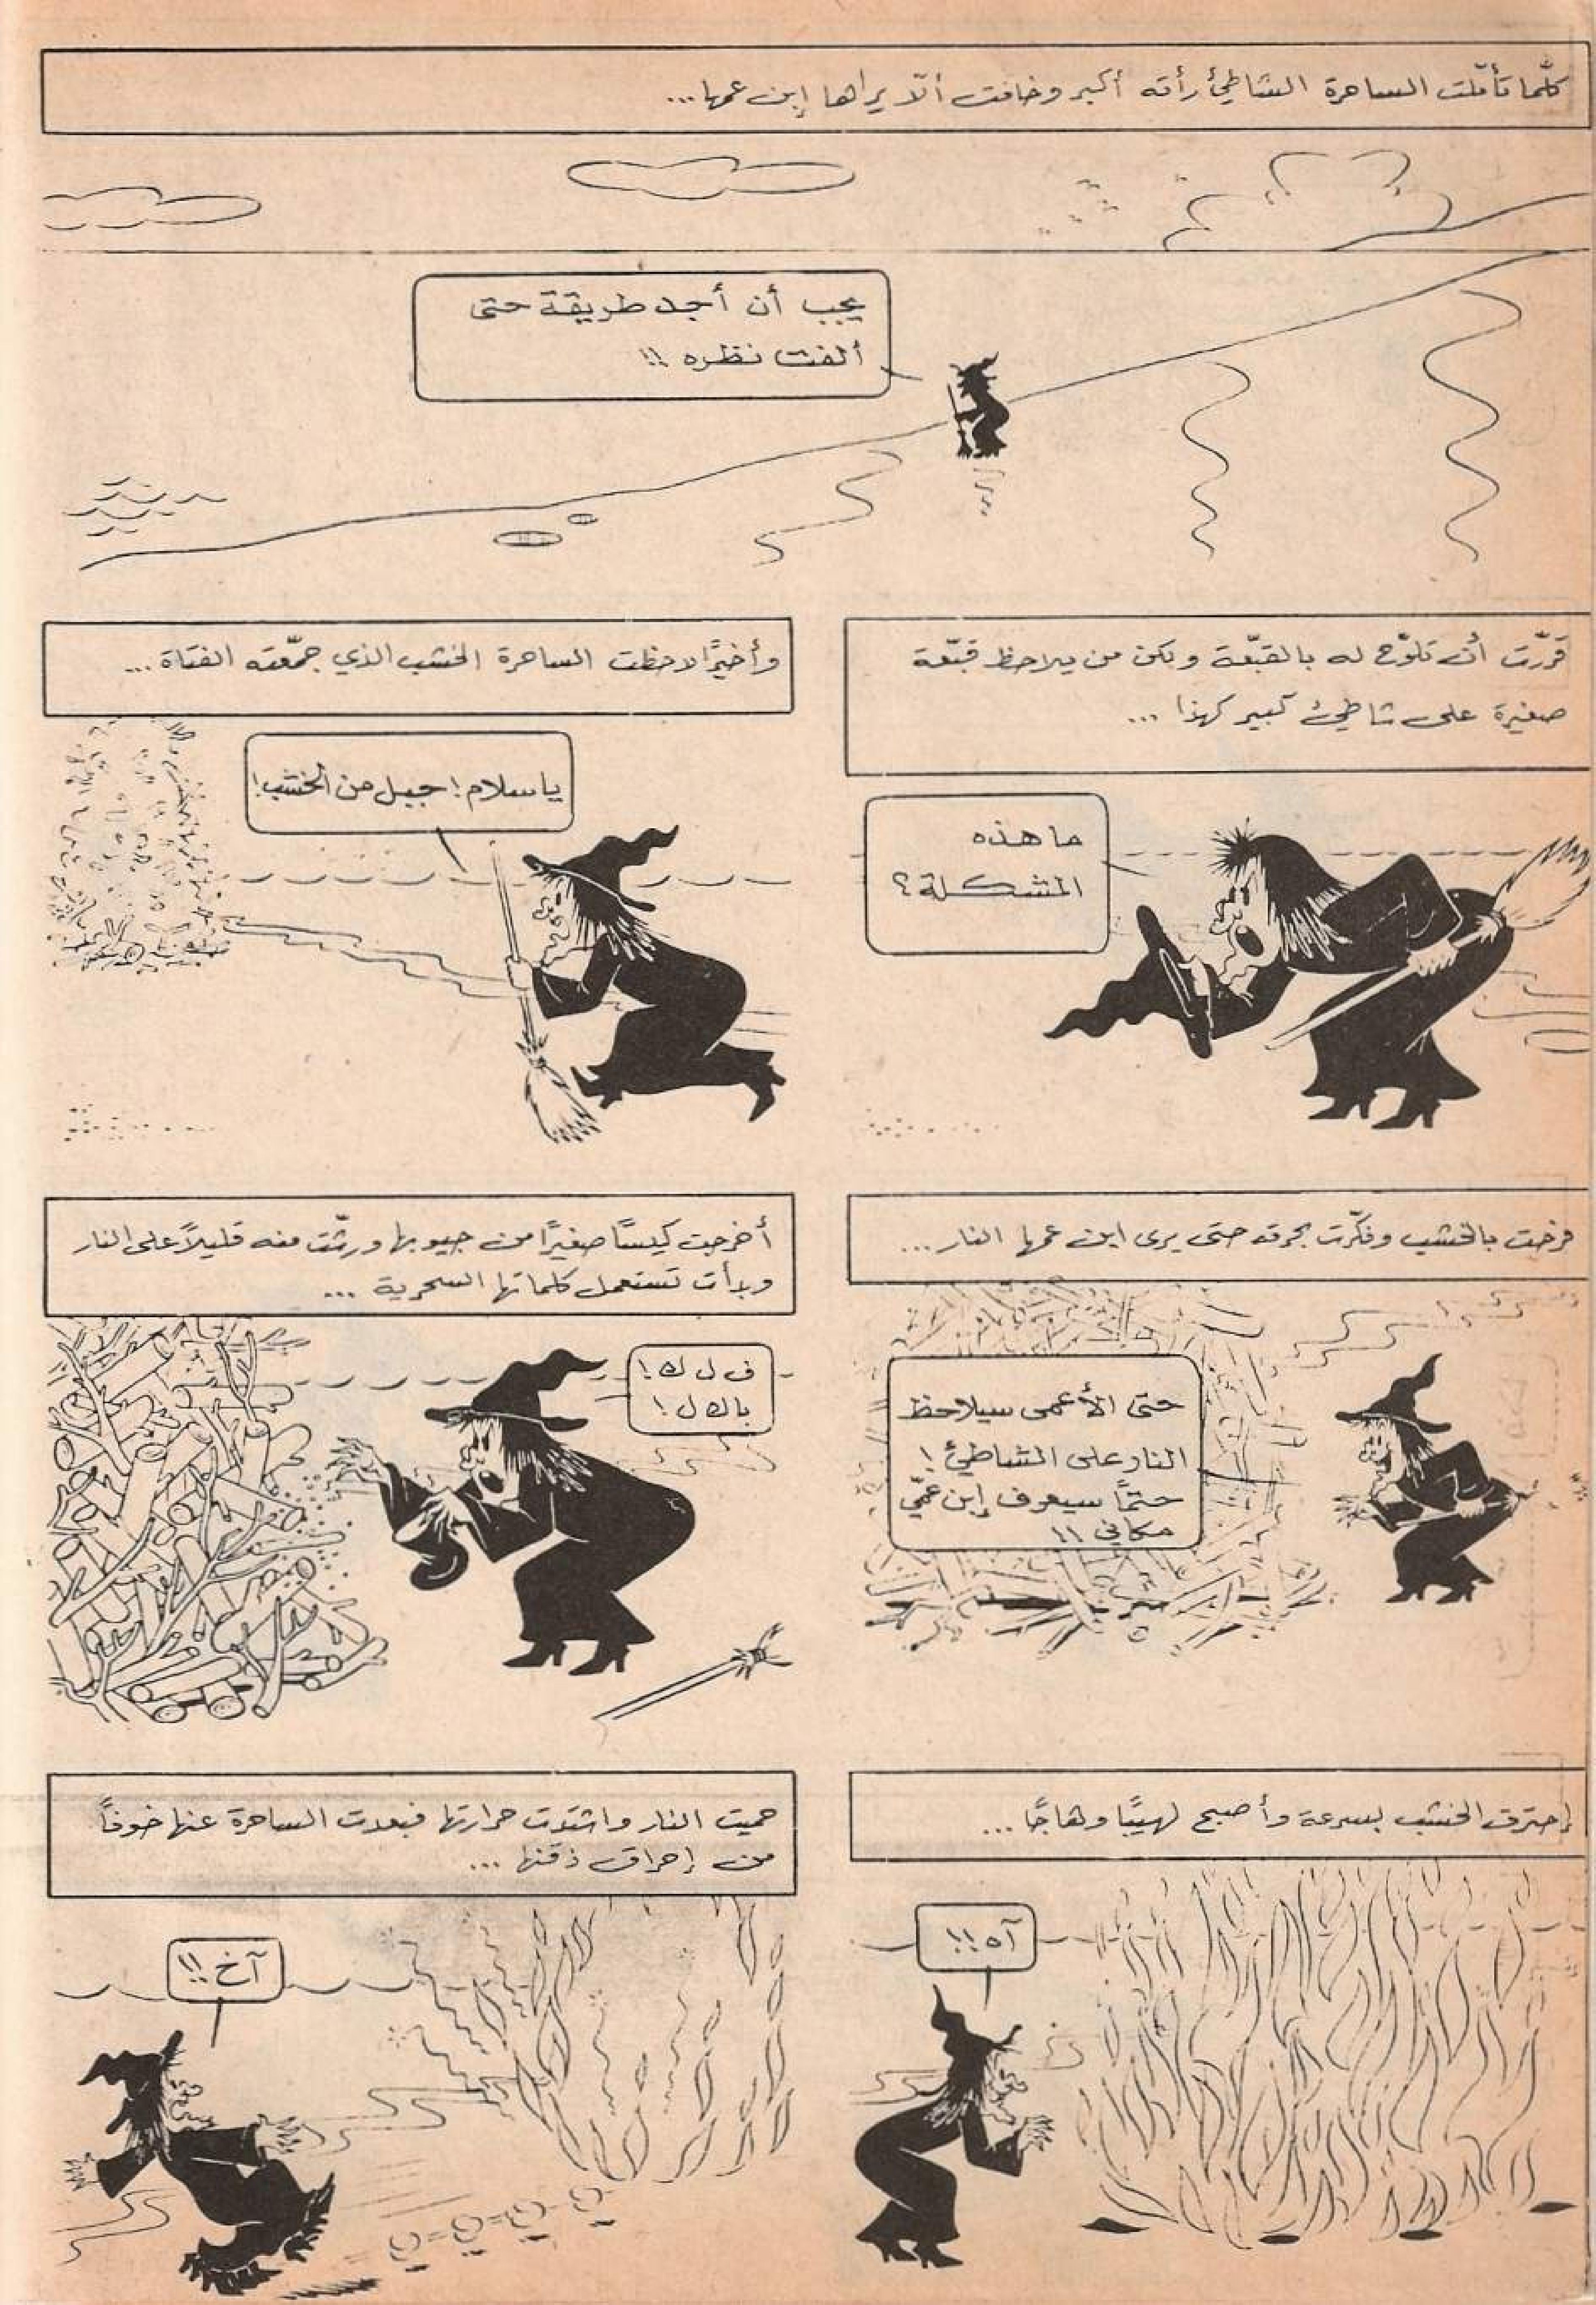 كلّما تأمّلت الساهرة الشاطئ رأته أكبر وخافت ألّا يراها إبن عمها...
يجب أن أجد طريقة حتى
ألفت نظره !!
قرّرت أن تلوّح له بالقبّعة ولكن من يلاحظ قبّعة
صغيرة على شاطئ كبير كهذا ...
ما هذه
المشكلة؟
وأخيرًا لاحظت الساحرة الخشب الذي جمّعته الفتاة ...
يا سلام! جبل من الخشب!
فرحت بالخشب وفكّرت بحرقه حتى يرى ابن عمها النار ...
حتى الأعمى سيلاحظ
النار على الشاطئ!
حتمًا سيعرف إبن عمّي
مكاني !!
أخرجت كيسًا صغيرًا من جيوبها ورشّت منه قليلاً على النار
وبدأت تستعمل كلماتها السحرية ...
ف ل ك!
بالك ل!
إحترق الخشب بسرعة وأصبح لهيبًا وهاجًا ...
آه !!
حميت النار واشتدت حرارتها فبعدت الساحرة عنها خوفاً
من إحراق ذقنها ...
آخ !!